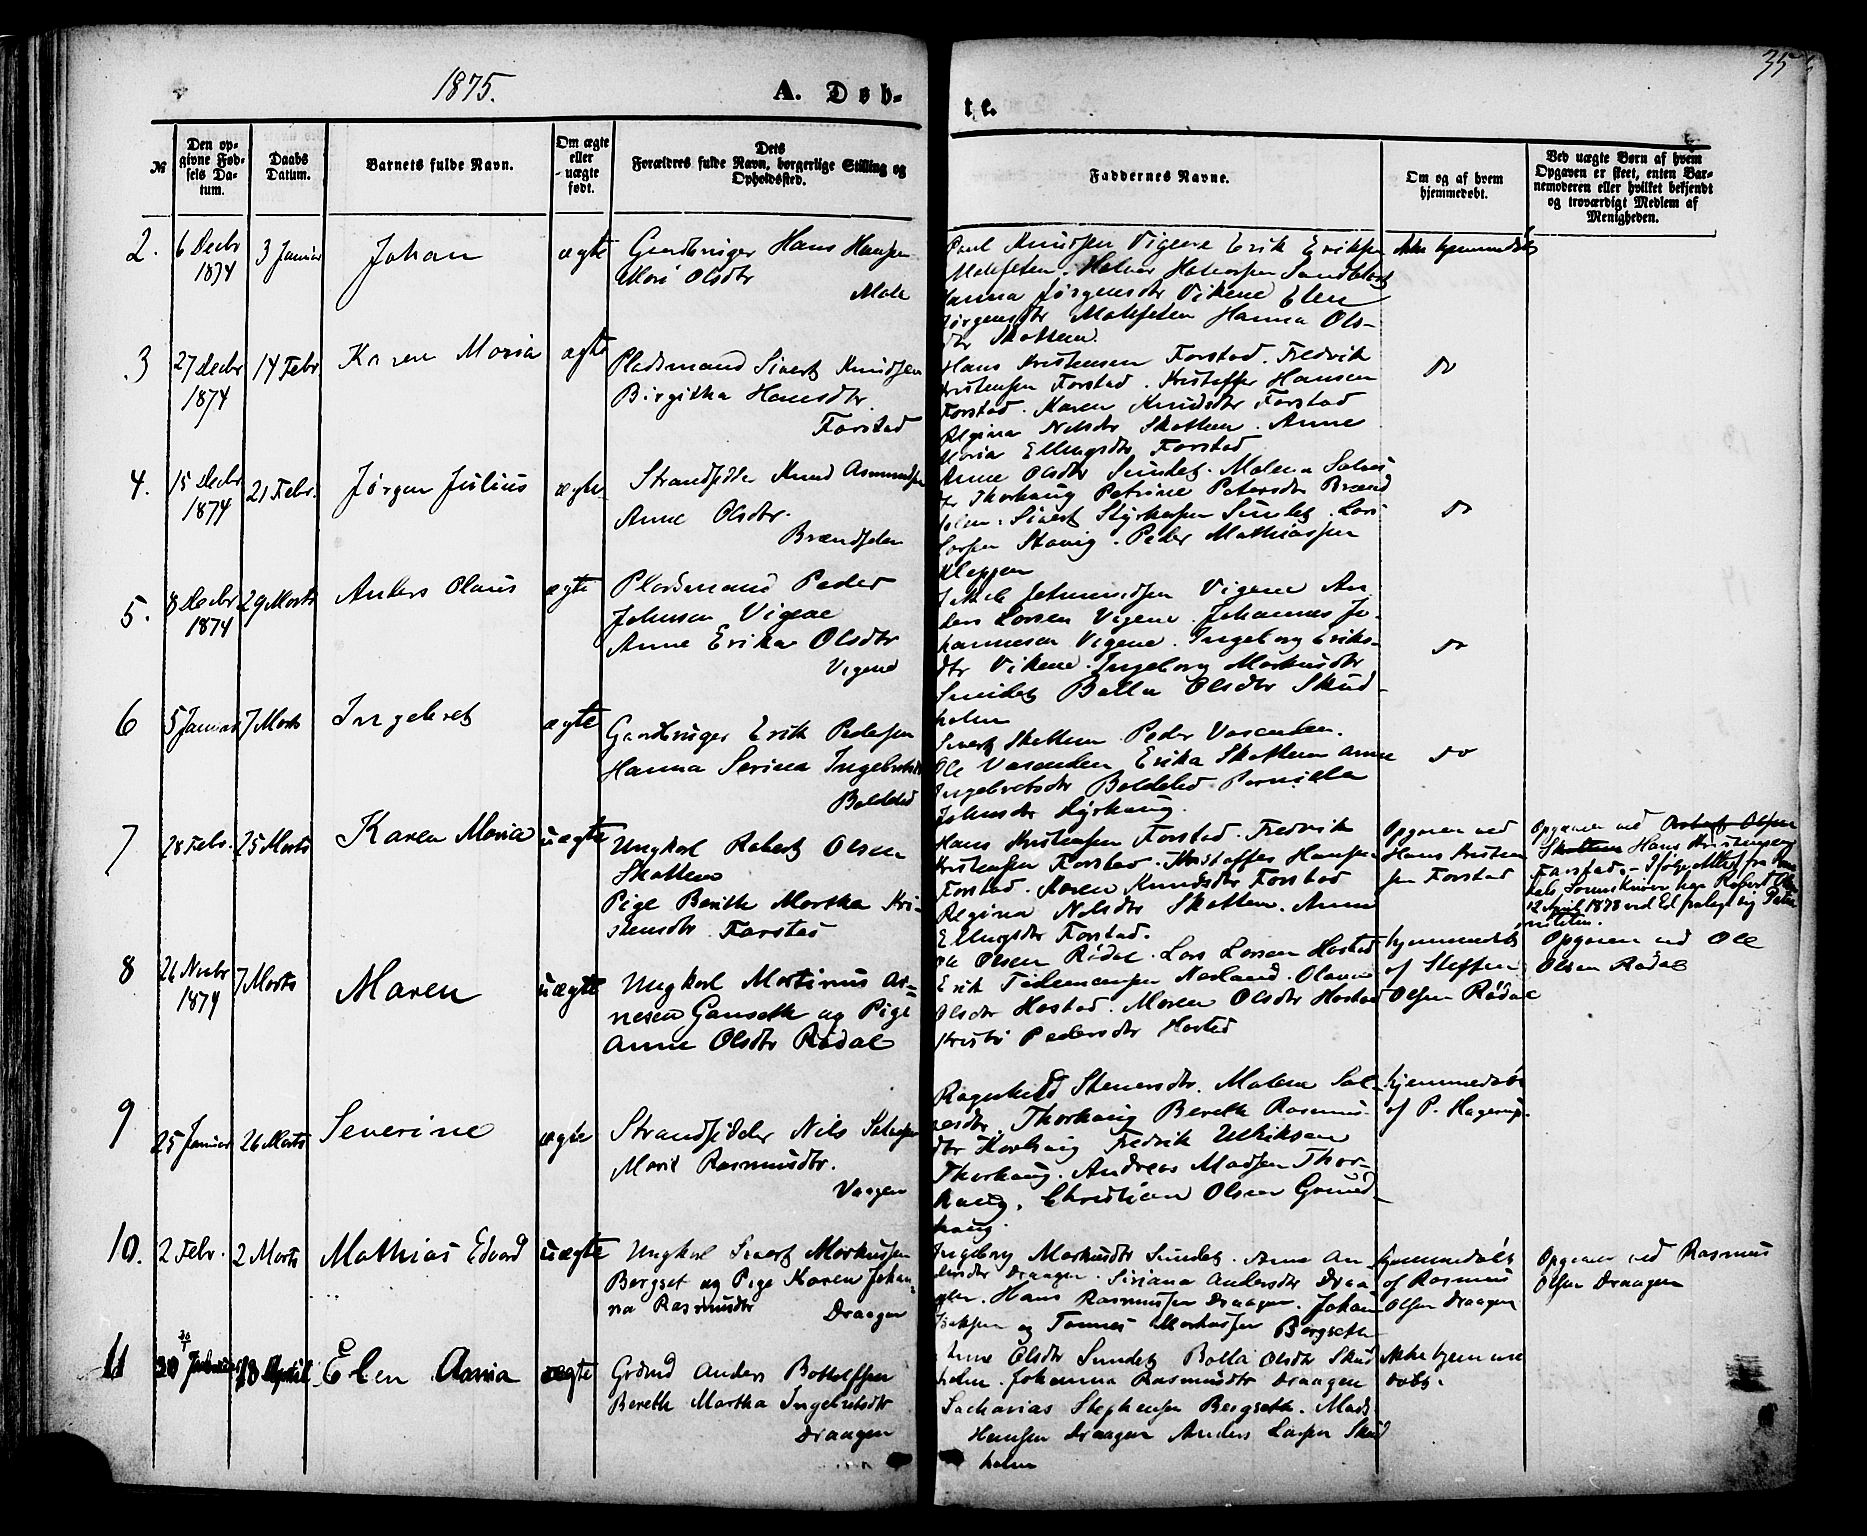 1875.
A. Døb-
te.
35
№
Den op-
givne Fød-
sels Da-
tum.
Daabs
Datum.
Barnets fulde Navn.
Om ægte
eller
uægte
født.
Dets
Forældres fulde Navn, borgerlige Stilling og
Opholdssted.
Faddernes Navne.
Om og af hvem
hjemmedøbt.
Ved uægte Børn af hvem
Opgaven er skeet, enten Bar-
nemoderen eller hvilket bekjendt
og troværdigt Medlem af
Menigheden.
2.
6 Decbr
1874
3 Januar
Johan
ægte
Gardbruger Hans Hansen
Mari Olsdtr
Male
Poul Knudsen Vigene Erik Eriksen
Malesæten. Halvor Halvorsen
Hanna Jørgensdtr Vikene Elen
Jørgensdtr Hanna Ols-
dtr Skottem
Ikke hjemmedøbt
3
27 Decbr
1874
14 Febr
Karen Maria
ægte
Pladsmand Sivert Knudsen
Birgitha Hansdtr
Farstad
Hans Kristensen Farstad. Fredrik
Kristensen Farstad. Kristoffer Hansen
Farstad. Karen Knudsdtr Farstad
Regina Nelsdtr Skottem. Anne
Maria Ellingsdtr Farstad
do
4.
15 Decbr
1874
21 Febr.
Jørgen Julius
ægte
Strandsidder Knud Asmundsen
Anne Olsdtr.
Brændjelen
Anne Olsdtr Sundet. Malena
Thorhaug Petrine Petersdtr
Sivert Sundet. Lars
Larsen Stavig. Peder Mathiassen
Kleppen
do
5.
8 Decbr
1874
29 Marts
Anders Olaus
ægte
Pladsmand Peder
Johnsen Vigene
Anne Erika Olsdtr
Vigene
Vigene An-
ders Larsen Vigene. Johannes Jo-
hannesen Vigene. Ingeborg Eriks-
dtr Vikene. Ingeborg Markusdtr
Sundet Balla Olsdtr Skud-
holm
do
6
5 Januar
7 Marts
Ingebret
ægte
Gardbruger Erik Pedersen
Hanna Serina Ingebretsdtr
Boldstad
Sivert Skottem Peder Vasenden.
Ole Vasenden Erika Skottem Anne
Ingebretsdtr Boldstad Pernilla
Johnsdtr
do
7
28 Febr.
25 Marts
Karen Maria
uægte
Ungkarl Robert Olsen
Skottem
Pige Berith Martha Kri-
stensdtr Farstad
Hans Kristensen Farstad. Fredrik
Kristensen Farstad. Kristoffer Hansen
Farstad. Karen Knudsdtr Farstad
Regina Nelsdtr Skottem. Anne
Ellingsdtr Farstad.
Opgaven ved
Hans Kristen
sen Farstad
Opgaven ved Olsen
Skottem Hans Kristensen
Farstad. - Ifølge Attest fra
har Robert
12 April 1878 ved Ed fralagt sig Pater
niteten.
8
26 Novbr
1874
7 Marts
Maren
uægte
Ungkarl Martinus Ar-
nesen Ganseth og Pige
Anne Olsdtr Rødal
Ole Olsen Rødal. Lars Larsen Hostad
Erik Nerland. Olava
Olsdtr Hostad. Maren Olsdtr Hostad
Pedersdtr Hostad
hjemmedøbt
af Steffen
Olsen Rødal
Opgaven ved Ole
Olsen Rødal
9
25 Januar
26 Marts
Severine
ægte
Strandsidder Nils
Marit Rasmusdtr.
Vaagen
Ragnhild Stenersdtr. Malena Sal-
vesdtr. Thorhaug Bereth Rasmus-
dtr Fredrik Ulriksen
Thorhaug. Andreas Madsen Thor-
haug. Christian Olsen Grund-
haug.
hjemmedøbt
af P. Hagerup.
10.
2 Febr.
2 Marts
Mathias Edvard
uægte
Ungkarl Sivert Markussen
Bergset og Pige Karen Johan-
na Rasmusdtr
Draagen
Ingeborg Markusdtr Sundet. Anne An-
dersdtr Draagen. Siriana Andersdtr Draa-
gen. Hans Rasmussen Draagen. Johan
Isaksen og Tønnes Markussen Bergseth
hjemmedøbt
af Rasmus
Olsen Draagen
Opgaven ved Rasmus
Olsen Draagen
11
30 Januar
18 April
Elen Anna
ægte
Grdmd Anders Bottolfsen
Bereth Martha Ingebretsdtr
Draagen
Anne Olsdtr Sundet Balla Olsdtr Skud
holm. Johanna Rasmusdtr Draagen
Sacharias Stephensen Bergseth. Mads
Hansen Draagen Anders Larsen Skud
holm
Ikke hjemme
døbt.